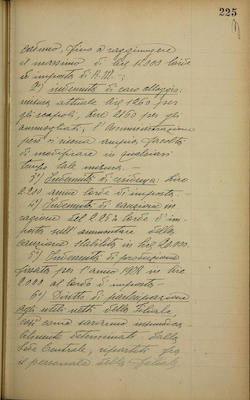 225
cadauno, fino a raggiungere
il massimo di Lire 12.000 lorde
d'imposta di R.M.;
2°) indennità di caro alloggio
misura attuale Lire 1260 per
gli scapoli, Lire 2160 per gli
ammogliati, l'Amministrazione
però si riserva ampia facoltà
di modificare in qualsiasi
tempo tale misura.
3°) Indennità di residenza: Lire
annue lorde di imposta.
4°) Indennità di cauzione in
ragione del 2.25% lordo d'im-
posta sull'ammontare della
cauzione stabilita in Lire
5°) Indennità di
fissata per l'anno 1928 in Lire
2.000 al lordo d'imposta
6°) Diritto di partecipazione
agli utili netti della Filiale,
così come saranno insindaca-
bilmente determinati dalla
Sede Centrale, ripartiti fra
il personale della Filiale